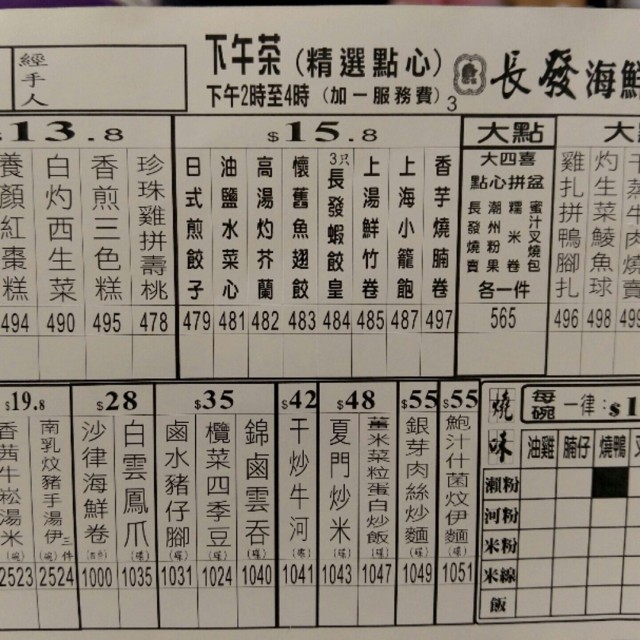 經手人
下午茶（精選點心）
下午2時至4時（加一服務費）3
長發海鮮
$13.8
養顏紅棗糕 494
白灼西生菜 490
香煎三色糕 495
珍珠雞拼壽桃 478
$15.8
日式煎餃子 479
油鹽水菜心 481
高湯灼芥蘭 482
懷舊魚翅餃 483
3只長發蝦餃皇 484
上湯鮮竹卷 485
上海小籠飽 487
香芋燒腩卷 497
大點
大四喜
點心拼盆
蜜汁叉燒包
糯米卷
潮州粉果
長發燒賣
各一件
565
雞扎拼鴨腳扎 496
灼生菜鯪魚球 498
$19.8
香茜牛崧湯米（碗） 2523
南乳炆豬手湯伊（碗）三件 2524
$28
沙律海鮮卷 1000
白雲鳳爪（碟） 1035
$35
鹵水豬仔腳（碟） 1031
欖菜四季豆（碟） 1024
錦鹵雲吞（碟） 1040
$42
干炒牛河（碟） 1041
$48
夏門炒米（碟） 1043
薑米菜粒蛋白炒飯（碟） 1047
$55
銀芽肉絲炒麵（碟） 1049
$55
鮑汁什菌炆伊麵（碟） 1051
燒味
每碗一律：$1
油雞 腩仔 燒鴨
瀨粉
河粉
米粉
米線
飯